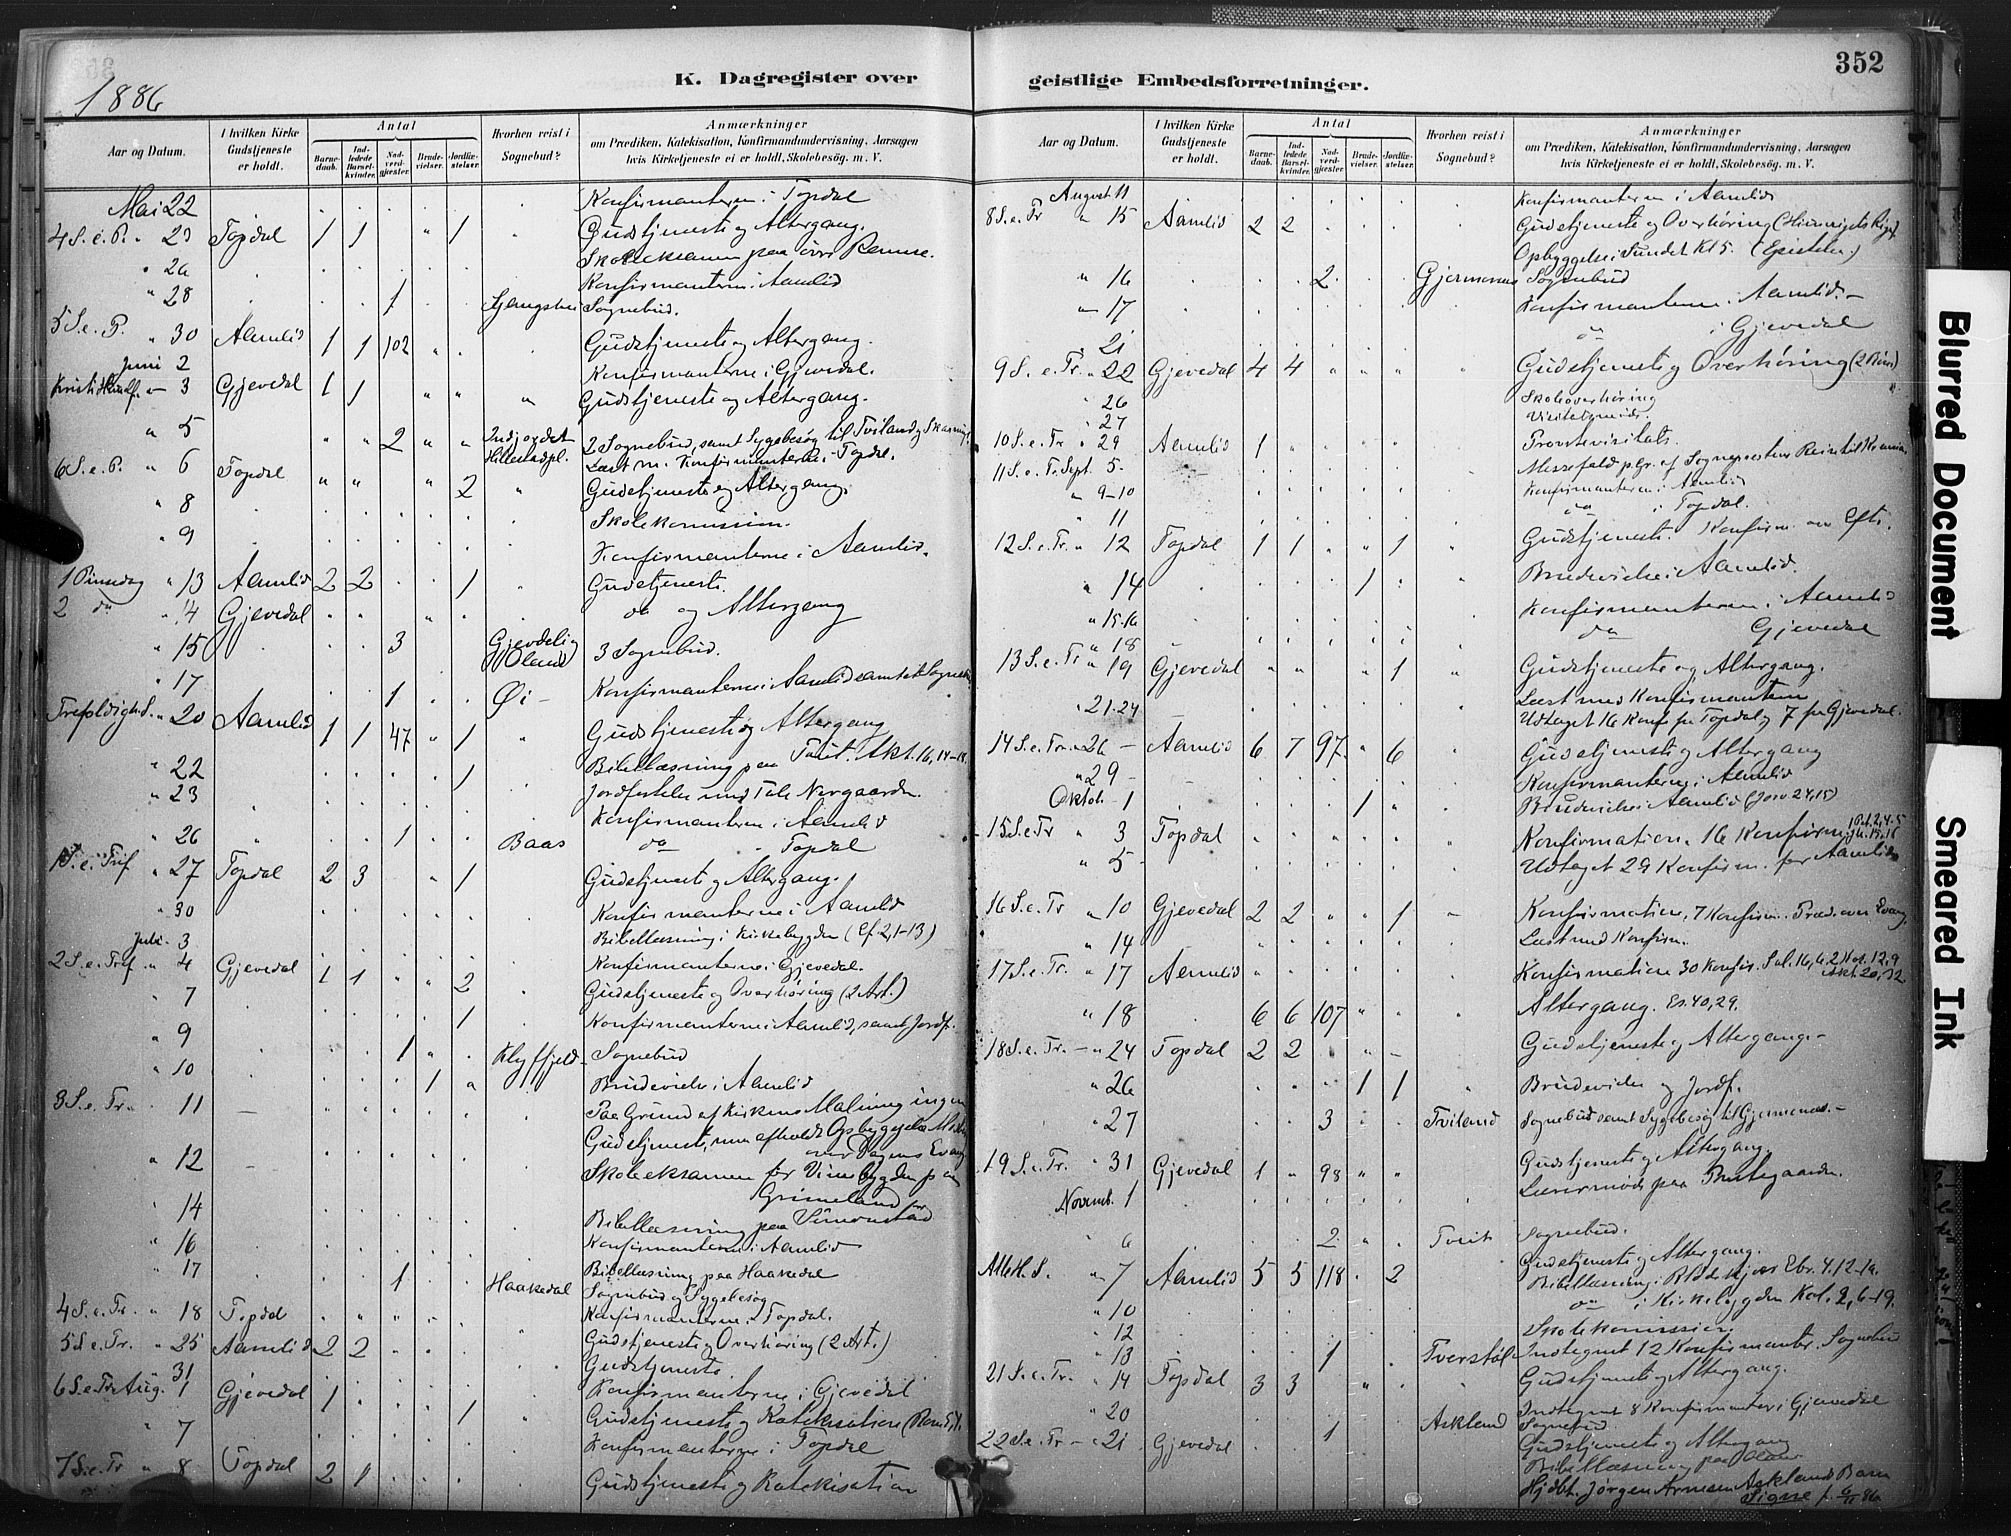 352
K. Dagregister over geistlige Embedsforretninger.
1886
Aar og Datum. | I hvilken Kirke Gudstjeneste er holdt. | Antal | Barnedaab. | Indledede Barselkvinder. | Nadverdgjester. | Brudevielser. | Jordfæstelser. | Hvorhen reist i Sognebud? | Anmærkninger om Prædiken, Katekisation, Konfirmandundervisning, Aarsagen hvis Kirketjeneste ei er holdt, Skolebesøg. m. V.
Mai 22 Konfirmanterne i Topdal
4 S. e. P. " 23 Topdal 1 1 " 1 Gudstjeneste og Altergang.
" 26 Skoleeksamen paa øvre Ramse.
" 28 Konfirmanterne i Aamlid
1 Sognebud.
5 S. e. P. " 30 Aamlid 1 1 102 " Gudstjeneste og Altergang.
Juni 2 Konfirmanterne i Gjevedal.
" 3 Gjevedal 1 1 " " " Gudstjeneste og Altergang.
" 5 " " 2 " " Hillestadpl. 2 Sognebud, samt Sygebesøg til Tviland og
Læst m. Konfirmanterne i Topdal.
6 S. e. P. " 6 Topdal " " " 2 " Gudstjeneste og Altergang.
" 8 Skolekommission.
" 9 Konfirmanterne i Aamlid.
1 Pinsedag " 13 Aamlid 2 2 1 " Gudstjeneste.
2 do " 14 Gjevedal do og Altergang
" 15 3 Gjevdeli og Øland 3 Sognebud.
" 17 1 Øi - Konfirmanterne i Aamlid samt et Sognebud
Trefoldigh. S. " 20 Aamlid 1 1 47 " 1 " Gudstjeneste og Altergang
" 22 Bibellæsning paa Tveit. Akt. 16, 14-18.
" 23 1 Jordfæstelse med Tale Nergaarden.
Konfirmanterne i Aamlid
" 26 1 Baas do " Topdal
1 S. e. Tref " 27 Topdal 2 3 " 1 Gudstjeneste og Altergang.
" 30 Konfirmanterne i Aamlid
Juli 3 Bibellæsning i Kirkebygden (Ef 2, 1-13)
Konfirmanterne i Gjevedal.
2 S. e. Tref " 4 Gjevedal 1 1 " " 2 Gudstjeneste og Overhøring (2 Art.)
" 7 1 Konfirmanterne i Aamlid, samt Jordf.
" 9 1 " Klyffjeld Sognebud
" 10 1 " Brudevielse i Aamlid
3 S. e. Tr. " 11 Paa Grund af Kirkens Maling ingen
Gudstjeneste, men afholdt Opbyggelse
over Dagens Evang.
" 12 Skoleeksamen for Vinebygden paa
Grimeland
" 14 Bibellæsning paa Simonstad
" 16 Konfirmanterne i Aamlid
" 17 1 Haakedal Bibellæsning paa Haakedal
Sognebud og Sygebesøg
4 S. e. Tr. " 18 Topdal Konfirmanterne i Topdal.
Gudstjeneste og Overhøring (2 Art.)
5 S. e. Tr. " 25 Aamlid 2 2 Gudstjeneste.
" 31 Konfirmanterne i Gjevedal
6 S. e. Tr. Aug. 1 Gjevedal 1 1 Gudstjeneste og Katekisation
" 7 Konfirmanterne i Topdal
7 S. e. Tr " 8 Topdal 2 1 Gudstjeneste og Katekisation
Aar og Datum. | I hvilken Kirke Gudstjeneste er holdt. | Antal | Barnedaab. | Indledede Barselkvinder. | Nadverdgjester. | Brudevielser. | Jordfæstelser. | Hvorhen reist i Sognebud? | Anmærkninger om Prædiken, Katekisation, Konfirmandundervisning, Aarsagen hvis Kirketjeneste ei er holdt, Skolebesøg. m. V.
August 11 Konfirmanterne i Aamlid
8 S. e. Tr " 15 Aamlid 2 2 Gudstjeneste og Overhøring (Himmeriges Rige)
Opbyggelse i Sundet Kl 5. (Epistelen)
" 16 2 Gjermenes Sognebud
" 17 Konfirmanterne i Aamlid. -
" 21 do i Gjevedal
9 S. e. Tr. " 22 Gjevedal 4 4 " " " Gudstjeneste og Overhøring (2 Bøn)
" 26 Skoleoverhøring
" 27
10 S. e. Tr " 29 Aamlid 1 " Provstevisitats.
11 S. e. Tr. Sept. 5. Messefald p. Gr. af Sognepræstens Reise til
" 9-10 Konfirmanterne i Aamlid
" 11 do i Topdal.
12 S. e. Tr. " 12 Topdal 1 1 " " 1 " Gudstjeneste. Konfirm. om Efts.
" 14 1 Brudevielse i Aamlid.
" 15-16 Konfirmanterne i Aamlid
" 18 do Gjevedal
13 S. e. Tr " 19 Gjevedal " " 1 " Gudstjeneste og Altergang.
" 21-24 Læst med Konfirmanterne
Udtaget 16 Konf. fr Topdal og 7 fra Gjevedal.
14 S. e. Tr. " 26 - Aamlid 6 7 97 " 6 Gudstjeneste og Altergang
" 29 - Konfirmanterne i Aamlid
Oktob. 1 1 " Brudevielse i Aamlid (Josv 24, 15)
15 S. e. Tr " 3 Topdal Konfirmation. 16 Konfirm.
" 5 Udtaget 29 Konfirm. for Aamlid
16 S. e. Tr " 10 Gjevedal 2 2 " " 1 " Konfirmation, 7 Konfirm. Præd. over Evang.
" 14 Læst med Konfirm.
17 S. e. Tr. " 17 Aamlid Konfirmation 30 Konfir. Sal. 16, 6. 2 Kor. 12, 9
Akt. 20, 32
" 18 6 6 107 " " " Altergang. Es. 40, 29.
18 S. e. Tr. - " 24 Topdal 2 2 " - Gudstjeneste og Altergang -
" 26 1 1 " Brudevielse og Jordf.
" 27 3 Tviland Sognebud samt Sygebesøg til Gjermenes. -
19 S. e. Tr. " 31 Gjevedal 1 " 98 " " Gudstjeneste og Altergang.
Novemb. 1 Lærermøde paa Præstegaarden.
" 6 2 " Tveit Sognebud.
Alle H. S. " 7 Aamlid 5 5 118 2 Gudstjeneste og Altergang.
Bibellæsning i Ebr. 4. 12-16.
" 10 do i Kirkebygden Kol. 2, 6-19.
" 12 Skolekommission
" 13 1 Tverstøl Indtegnet 12 Konfirmanter. Sognebud
21 S. e. Tr. " 14 Topdal 3 3 " Gudstjeneste og Altergang.
" 20 1 Askland Indtegnet 8 Konfirmanter i Gjevedal
Sognebud
22 S. e. Tr - " 21 Gjevedal Gudstjeneste og Altergang
Bibellæsning paa
Hjdbt. Jørgen Arnesen Asklands Barn
Signe f. 6/11 86
Blurred Document
Smeared Ink